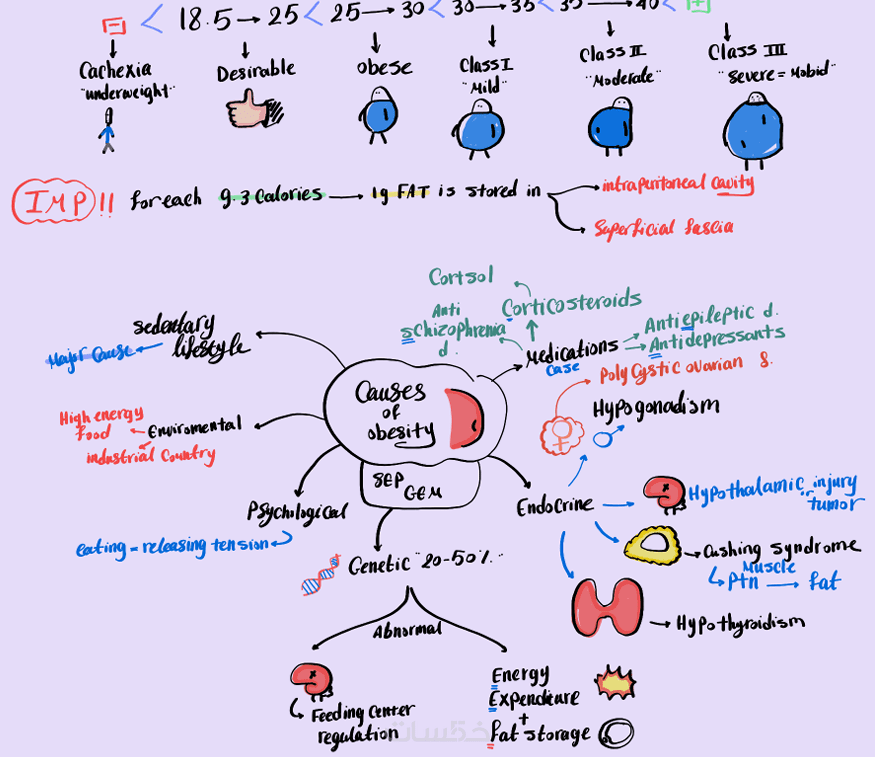 18.5 → 25 < 25 → 30 < 30 → 35 < 35 → 40 <
Cachexia
"underweight"
Desirable
obese
Class I
"Mild"
Class II
"Moderate"
Class III
"Severe = Mobid"
IMP!! For each 9.3 Calories → 1g FAT is stored in
intraperitoneal cavity
Superficial fascia
Causes
of
obesity
SEP
GEM
sedentary
lifestyle
Major Cause
Enviromental
High energy
Food
industrial Country
Psychological
eating = releasing tension
Genetic "20-50%"
Abnormal
Feeding center
regulation
Energy
Expenditure
+
Fat storage
Medications
Case
Corticosteroids
Cortsol
Anti
schizophrenia
d.
Antiepileptic d.
Antidepressants
Endocrine
Poly Cystic ovarian S.
Hypogonadism
Hypothalamic injury
or tumor
Cushing syndrome
Muscle
Ptn → fat
Hypothyroidism
خمسات